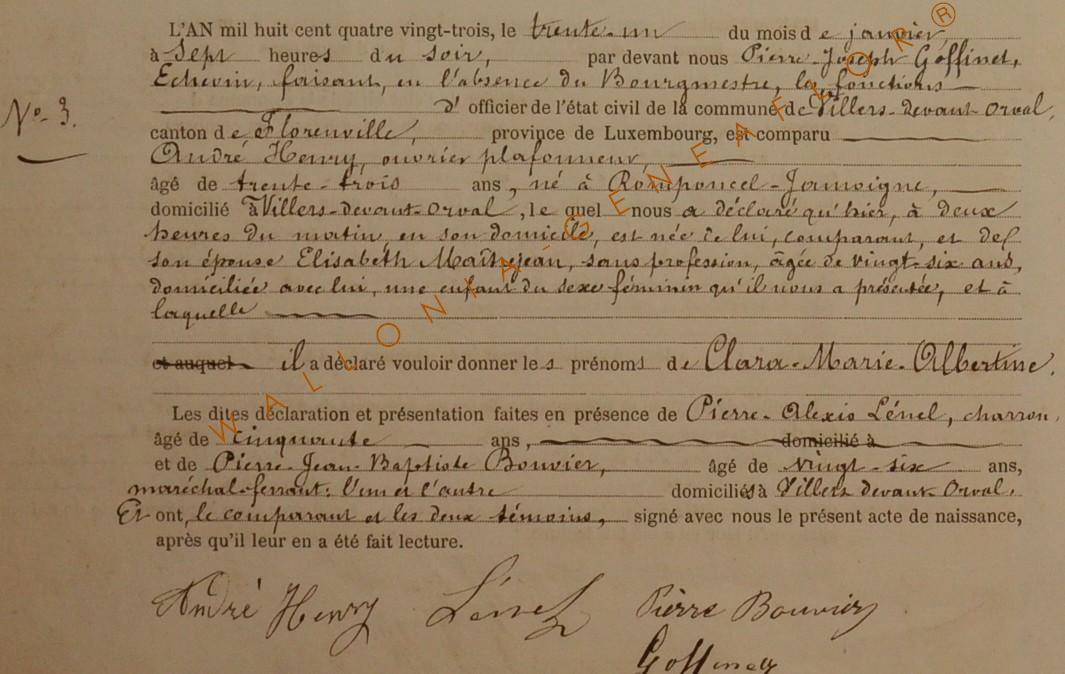 L'AN mil huit cent quatre vingt-trois, le trente-un du mois de janvier,
à Sept heures du soir, par devant nous Pierre-Joseph Goffinet,
Echevin, faisant, en l'absence du Bourgmestre, les fonctions
N° 3.
D' officier de l'état civil de la commune de Villers-devant-Orval,
canton de Florenville, province de Luxembourg, est comparu
André Henry, ouvrier plafonneur,
âgé de trente-trois ans, né à Romponcel-Jamoigne,
domicilié à Villers-devant-Orval, le quel nous a déclaré qu'hier, à deux
heures du matin, en son domicile, est née de lui, comparant, et de
son épouse Elisabeth Maîtrejean, sans profession, âgée de vingt-six ans,
domiciliée avec lui, une enfant du sexe féminin qu'il nous a présentée, et à
laquelle
et auquel il a déclaré vouloir donner les prénoms de Clara-Marie-Albertine.
Les dites déclaration et présentation faites en présence de Pierre-Alexis Lénel, charron,
âgé de cinquante ans, domicilié à
et de Pierre-Jean-Baptiste Bouvier, âgé de vingt-six ans,
maréchal-ferrant; l'un et l'autre domiciliés à Villers devant-Orval.
Et ont, le comparant et les deux témoins, signé avec nous le présent acte de naissance,
après qu'il leur en a été fait lecture.
André Henry Lénel Pierre Bouvier
Goffinet
WALLONIA-GENEAFLOR®